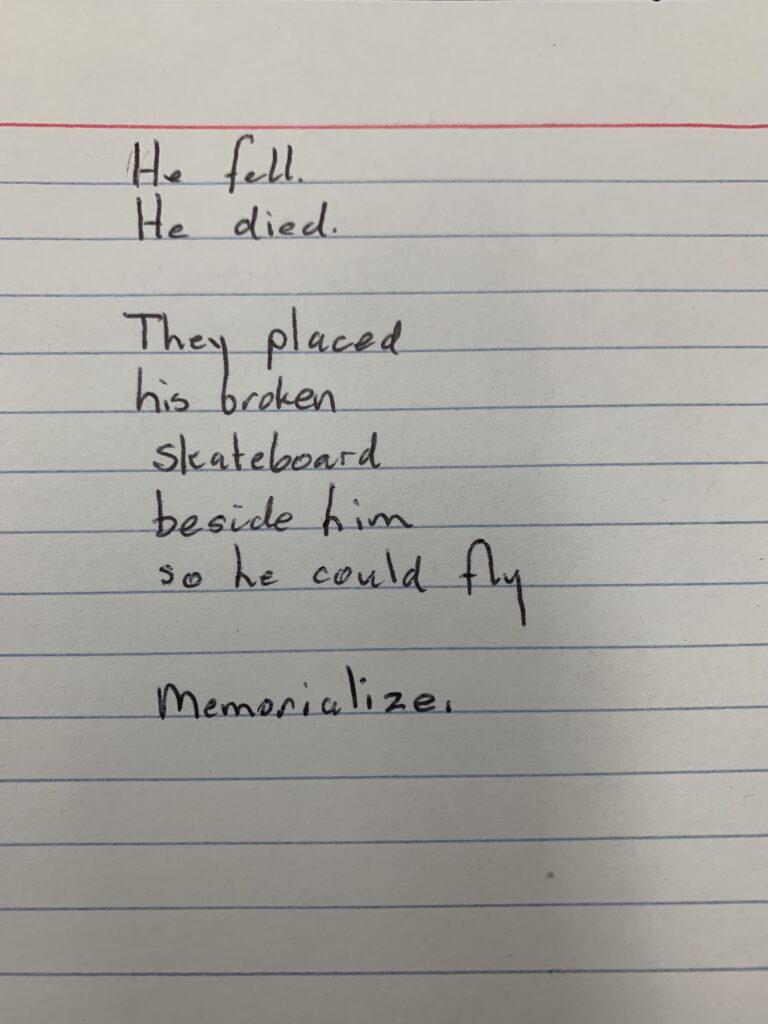 He fell.
He died.
They placed
his broken
skateboard
beside him
so he could fly
Memorialize.